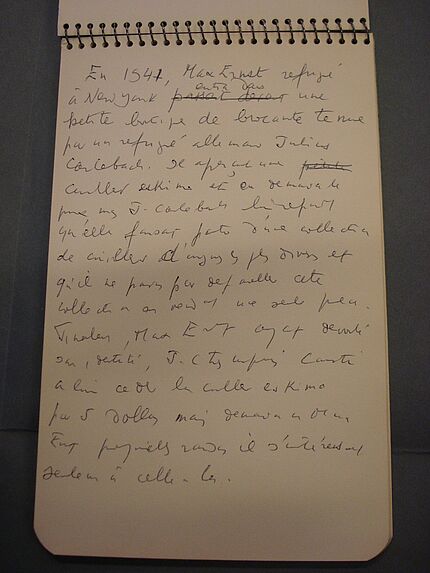 En 1941, Max Ernst refugié
à New York passait devant entra dans une
petite boutique de brocante tenue
par un refugié allemand Julius
Carlebach. Il aperçut une petite
cuiller eskimo et en demanda le
prix mais J. Carlebach lui répond
qu'elle faisait partie d'une collection
de cuillers d'origines les plus divers et
qu'il ne pouvait pas défaire cette
collection en une seule
Finalement, Max Ernst ayant dévoilé
son identité, J. C
à lui céder la cuiller eskimo
pour 5 dollars mais demanda à Max
Ernst pour quelles raisons il s'intéressait
seulement à celle-là.